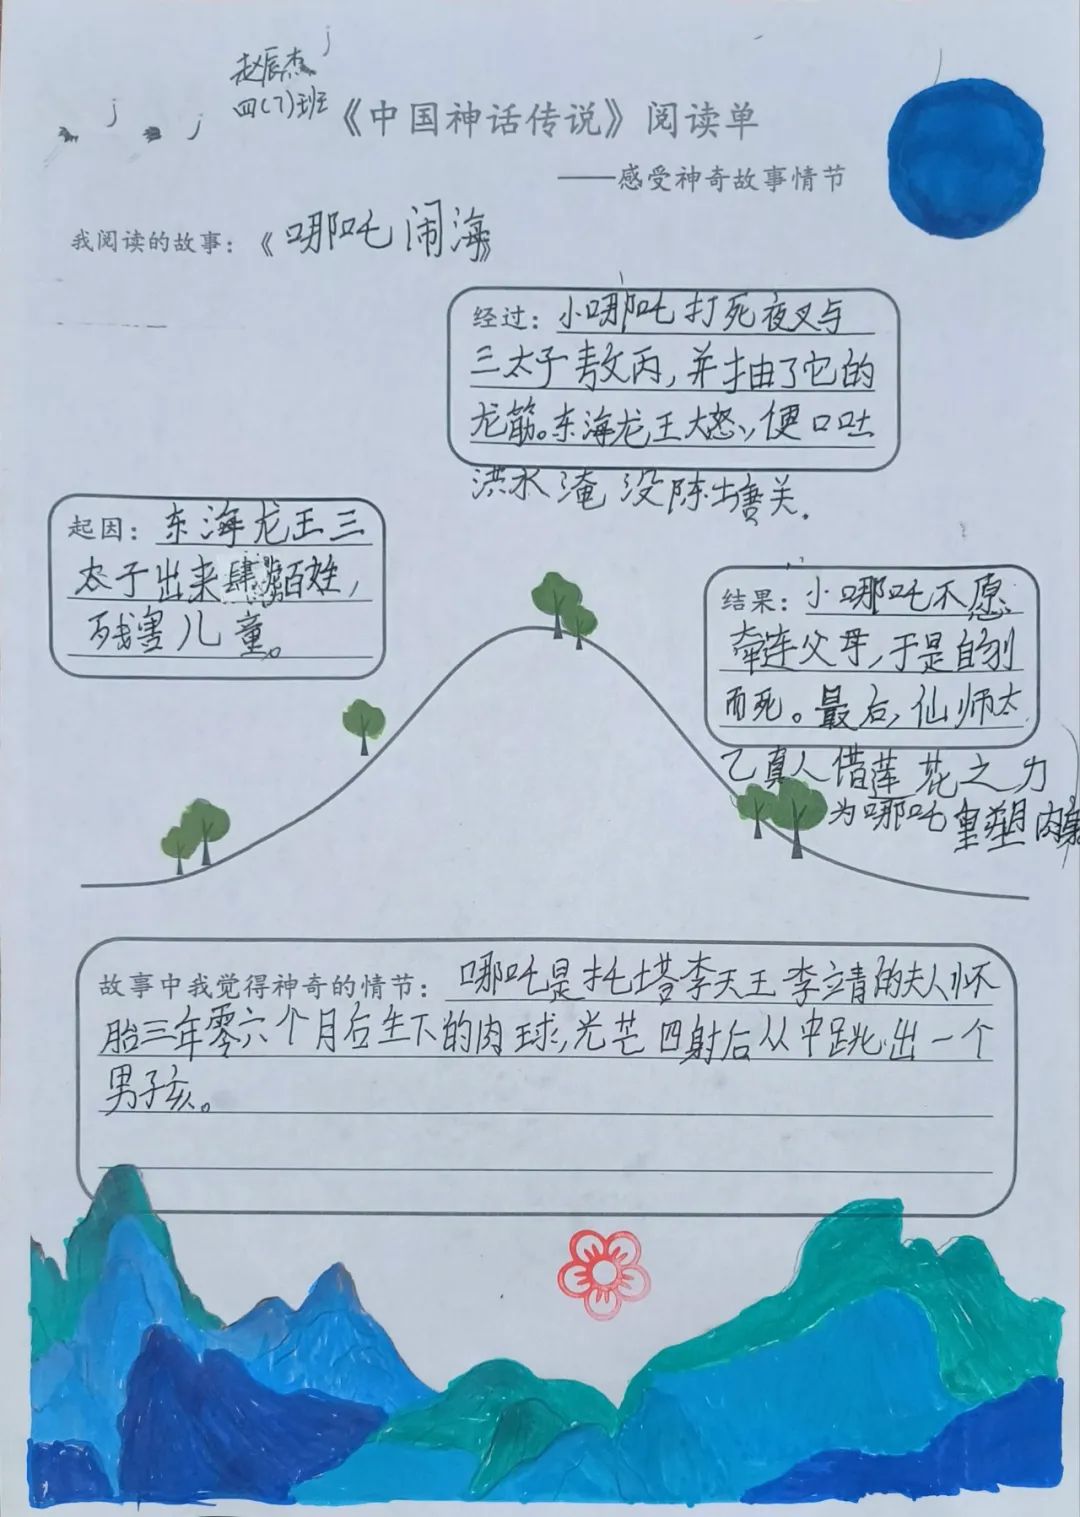 赵辰杰
四(7)班
《中国神话传说》阅读单
——感受神奇故事情节
我阅读的故事：《哪吒闹海》
经过：小哪吒打死夜叉与
三太子敖丙，并抽了它的
龙筋。东海龙王大怒，便口吐
洪水淹没陈塘关.
起因：东海龙王三
太子出来肆虐百姓，
残害儿童。
结果：小哪吒不愿
牵连父母，于是自刎
而死。最后，仙师太
乙真人借莲花之力
为哪吒重塑肉身
故事中我觉得神奇的情节：哪吒是托塔李天王李靖的夫人怀
胎三年零六个月后生下的肉球，光芒四射后从中跳出一个
男子孩。